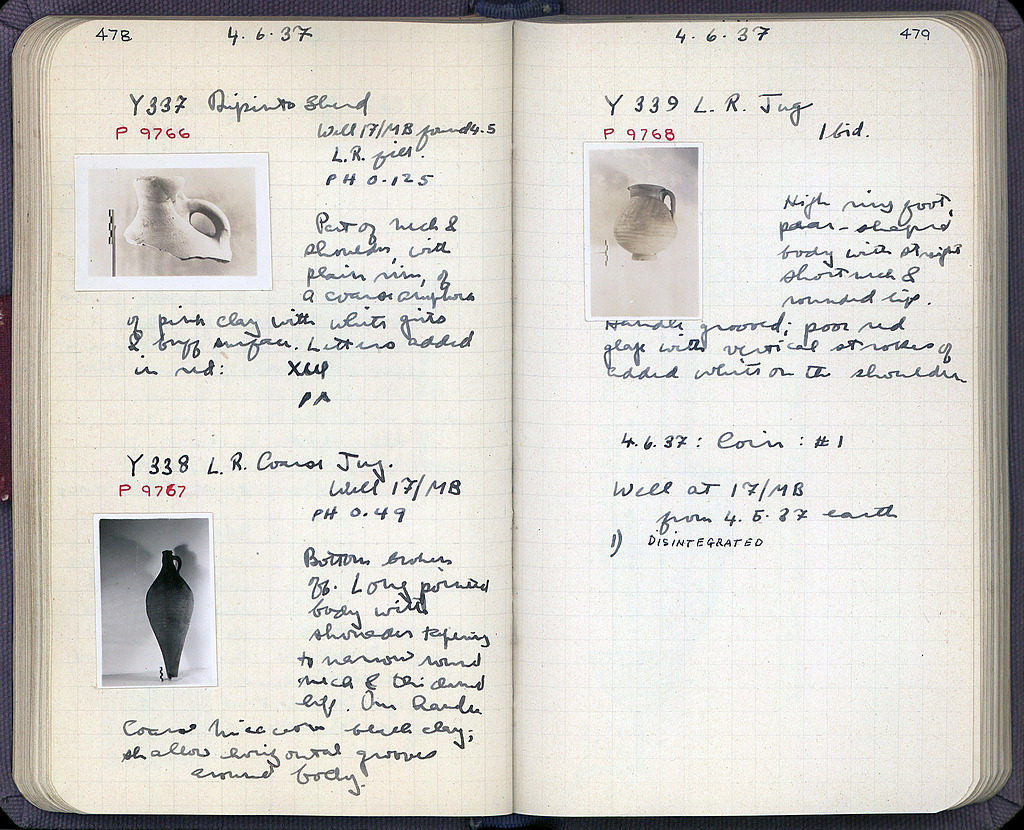 478
4.6.37
Y 337 Dipinto Sherd
P 9766
Well 17/MB found 4.5
L.R. fill.
PH 0.125
Part of neck &
shoulder, with
plain rim, of
a coarse amphora
of pink clay with white grits
& buff surface. Letters added
in red:
Y 338 L.R. Coarse Jug.
P 9767
Well 17/MB
PH 0.49
Bottom broken
off. Long pointed
body with
shoulder tapering
to narrow round
neck & thickened
lip. One handle
Coarse micaceous black clay;
shallow horizontal grooves
around body.
4.6.37
479
Y 339 L.R. Jug
P 9768
Ibid.
High ring foot,
pear-shaped
body with straight
short neck &
rounded lip.
Handle grooved; poor red
glaze with vertical strokes of
added white on the shoulder
4.6.37: Coin: #1
Well at 17/MB
from 4.5.37 earth
1) DISINTEGRATED